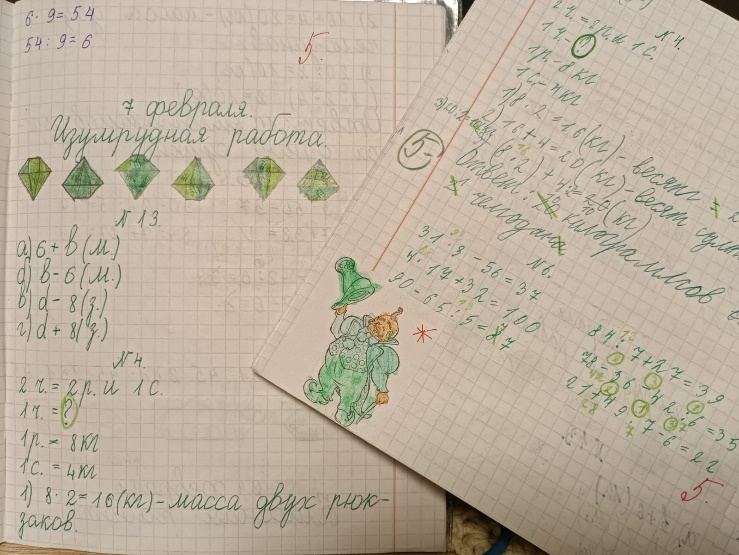 6 · 9 = 54
54 : 9 = 6
5.
7 февраля.
Изумрудная работа.
N 13.
а) 6 + b (м.)
б) b - 6 (м.)
в) d - 8 (з.)
г) d + 8 (з.)
N 4.
2 ч. = 2 р. и 1 с.
1 ч. = ?
1 р. - 8 кг
1 с. = 4 кг
1) 8 · 2 = 16 (кг) - масса двух рюк-
заков.
N 4.
2 ч. = 2 р. и 1 с.
1 ч. - ?
1 р. - 8 кг
1 с. - 4 кг
1) 8 · 2 = 16 (кг) - весят
2) 16 + 4 = 20 (кг) - весят
(8 · 2) + 4 = 20 (кг)
Ответ: килограммов
чемодана
5-
N 6.
31 · 3 - 56 = 37
4 · 17 + 32 = 100
90 - 65 : 5 = 77
84 : 7 + 27 = 39
78 - 36 - 42 : 6 = 35
21 + 49 : 7 - 6 = 22
5.